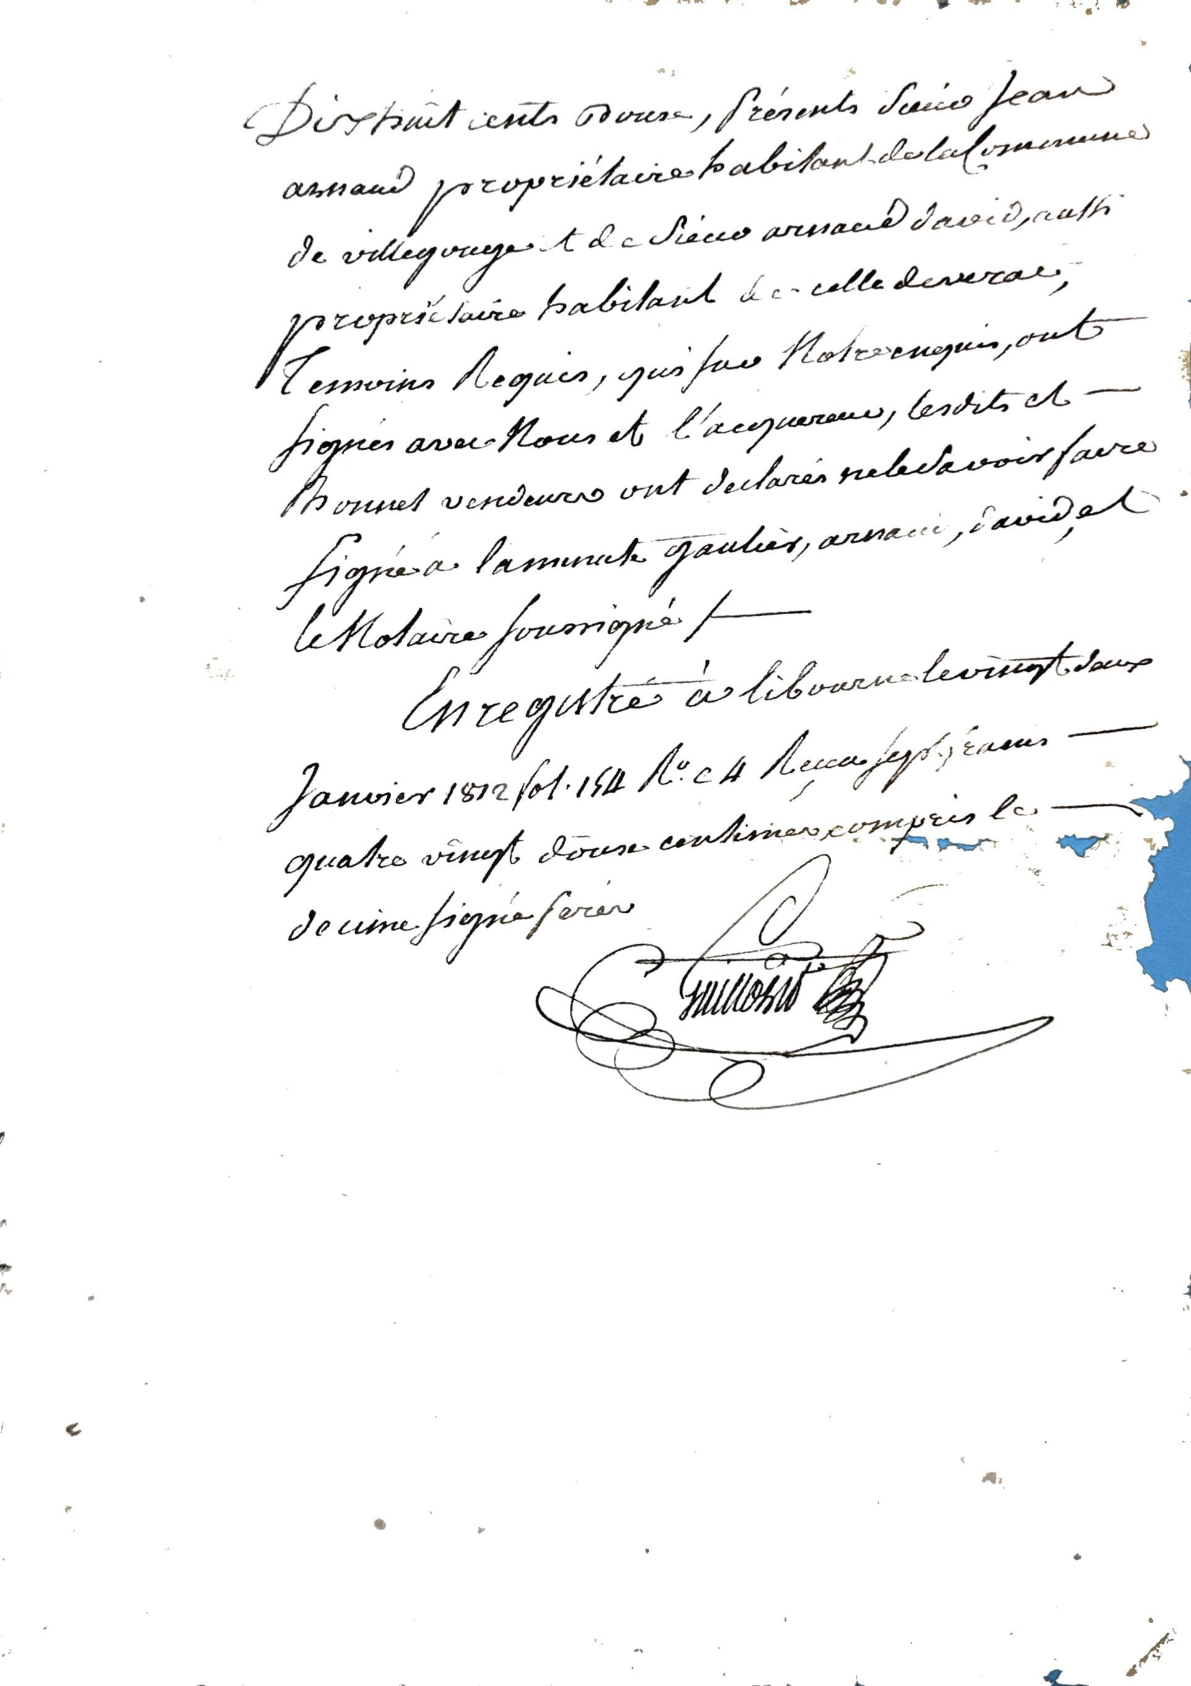 Dix huit cents Douze, présents sieur Jean
arnaud propriétaire habitant de la Commune
de villegouge et de sieur arnaud david, aussi
propriétaire habitant de celle de verac,
Temoins Requis, qui sur Notre enquis, ont
signés avec Nous et l'acquereur, lesdits et
bonnet vendeurs ont declarés ne le savoir faire
signé a la minute gautier, arnaud, david, et
le Notaire soussigné /
Enregistré à libourne le vingt deux
Janvier 1812 fol. 154 Ro. c 4 Reçu sept francs
quatre vingt douze centimes compris le
decime signé